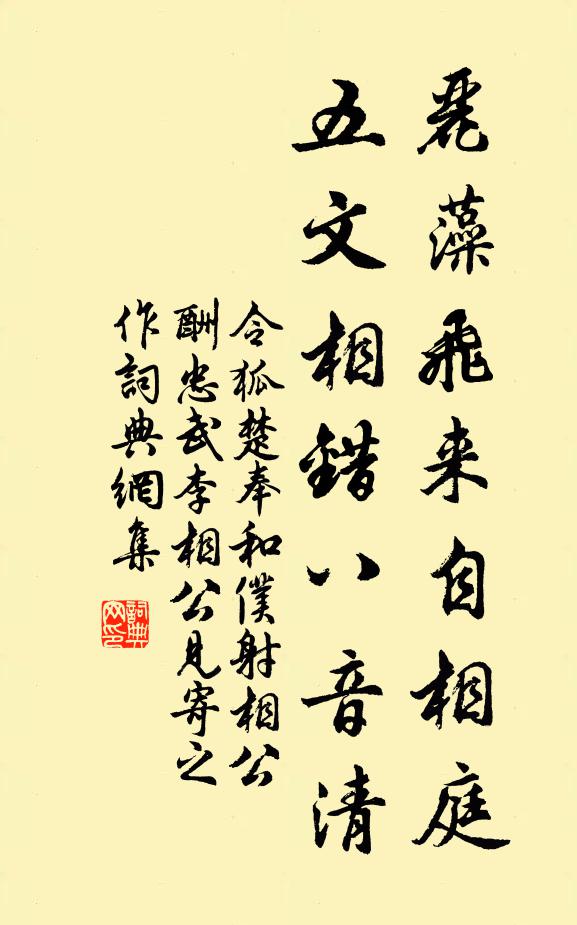 麗藻飛来自相庭
五文相錯八音清
令狐楚奉和僕射相公
酬忠武李相公見寄之
作詞典網集
詞典
网印